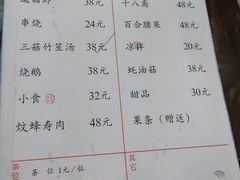 38元
串烧 24元
三菇竹笙汤 38元
烧鹅 38元
小食 32元
蚊蜂寿肉 48元
十八 48元
百合腰果 48元
凉拌 20元
蚝油菇 38元
甜品 30元
果条（赠送）
茶位
茶 位 1元/位
其它